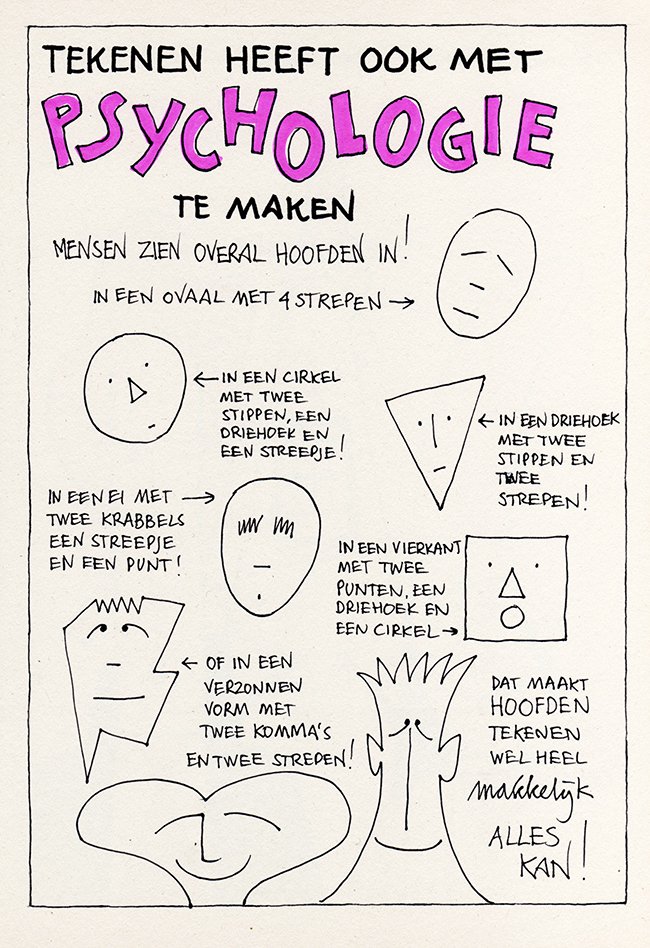 TEKENEN HEEFT OOK MET
PSYCHOLOGIE
TE MAKEN
MENSEN ZIEN OVERAL HOOFDEN IN!
IN EEN OVAAL MET 4 STREPEN →
← IN EEN CIRKEL
MET TWEE
STIPPEN, EEN
DRIEHOEK EN
EEN STREEPJE!
← IN EEN DRIEHOEK
MET TWEE
STIPPEN EN
TWEE
STREPEN!
IN EEN EI MET →
TWEE KRABBELS
EEN STREEPJE
EN EEN PUNT!
IN EEN VIERKANT
MET TWEE
PUNTEN, EEN
DRIEHOEK EN
EEN CIRKEL →
← OF IN EEN
VERZONNEN
VORM MET
TWEE KOMMA'S
EN TWEE STREPEN!
DAT MAAKT
HOOFDEN
TEKENEN
WEL HEEL
makkelijk
ALLES
KAN!